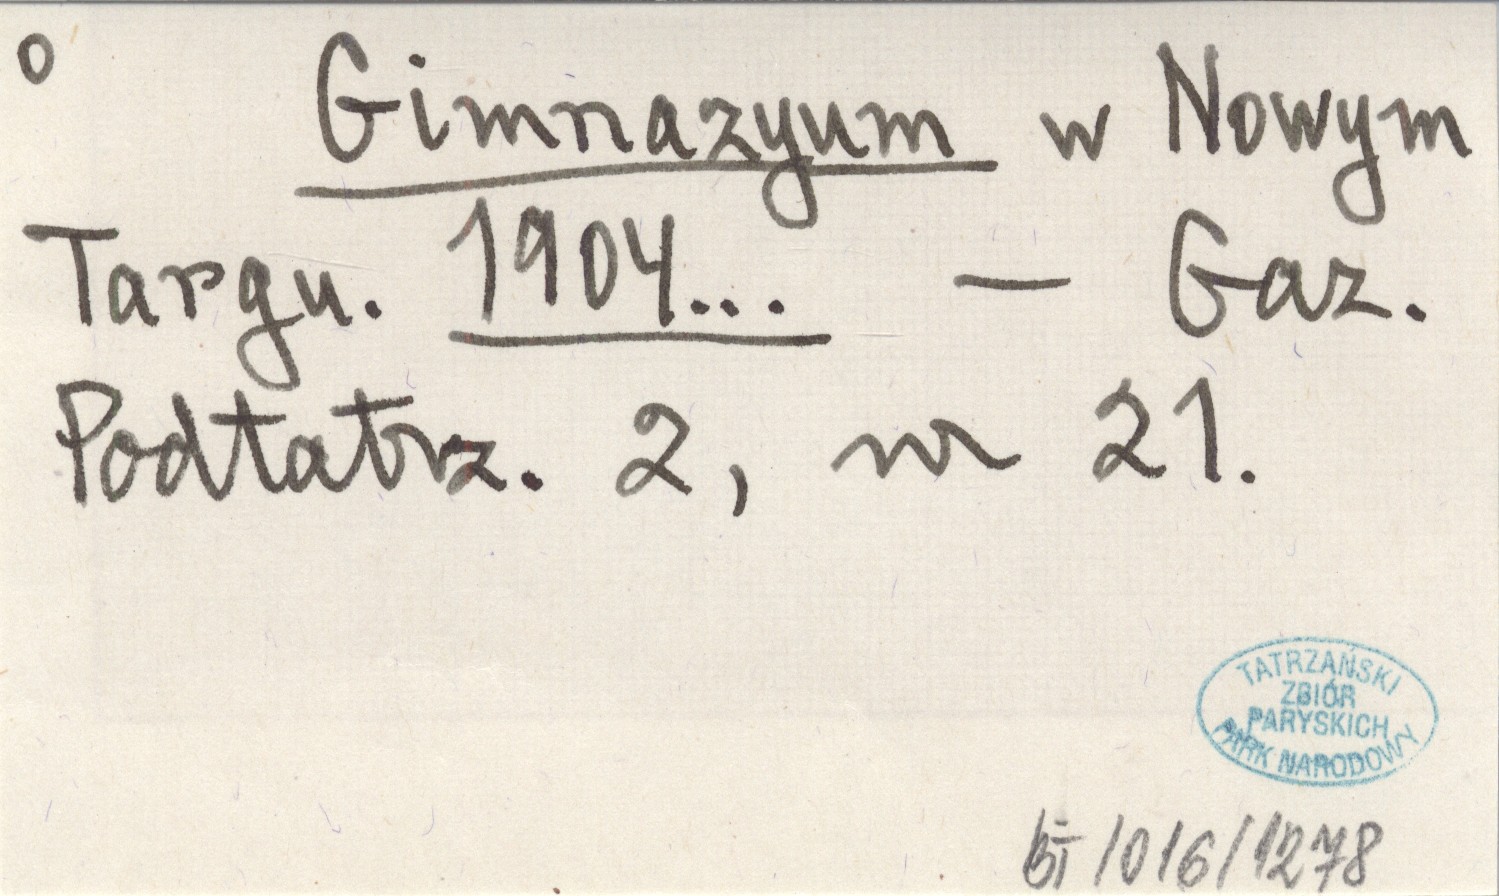 o Gimnazyum w Nowym
Targu. 1904... — Gaz.
Podtatrz. 2, nr 21.
TATRZAŃSKI
ZBIÓR
PARYSKICH
PARK NARODOWY
/016/1278